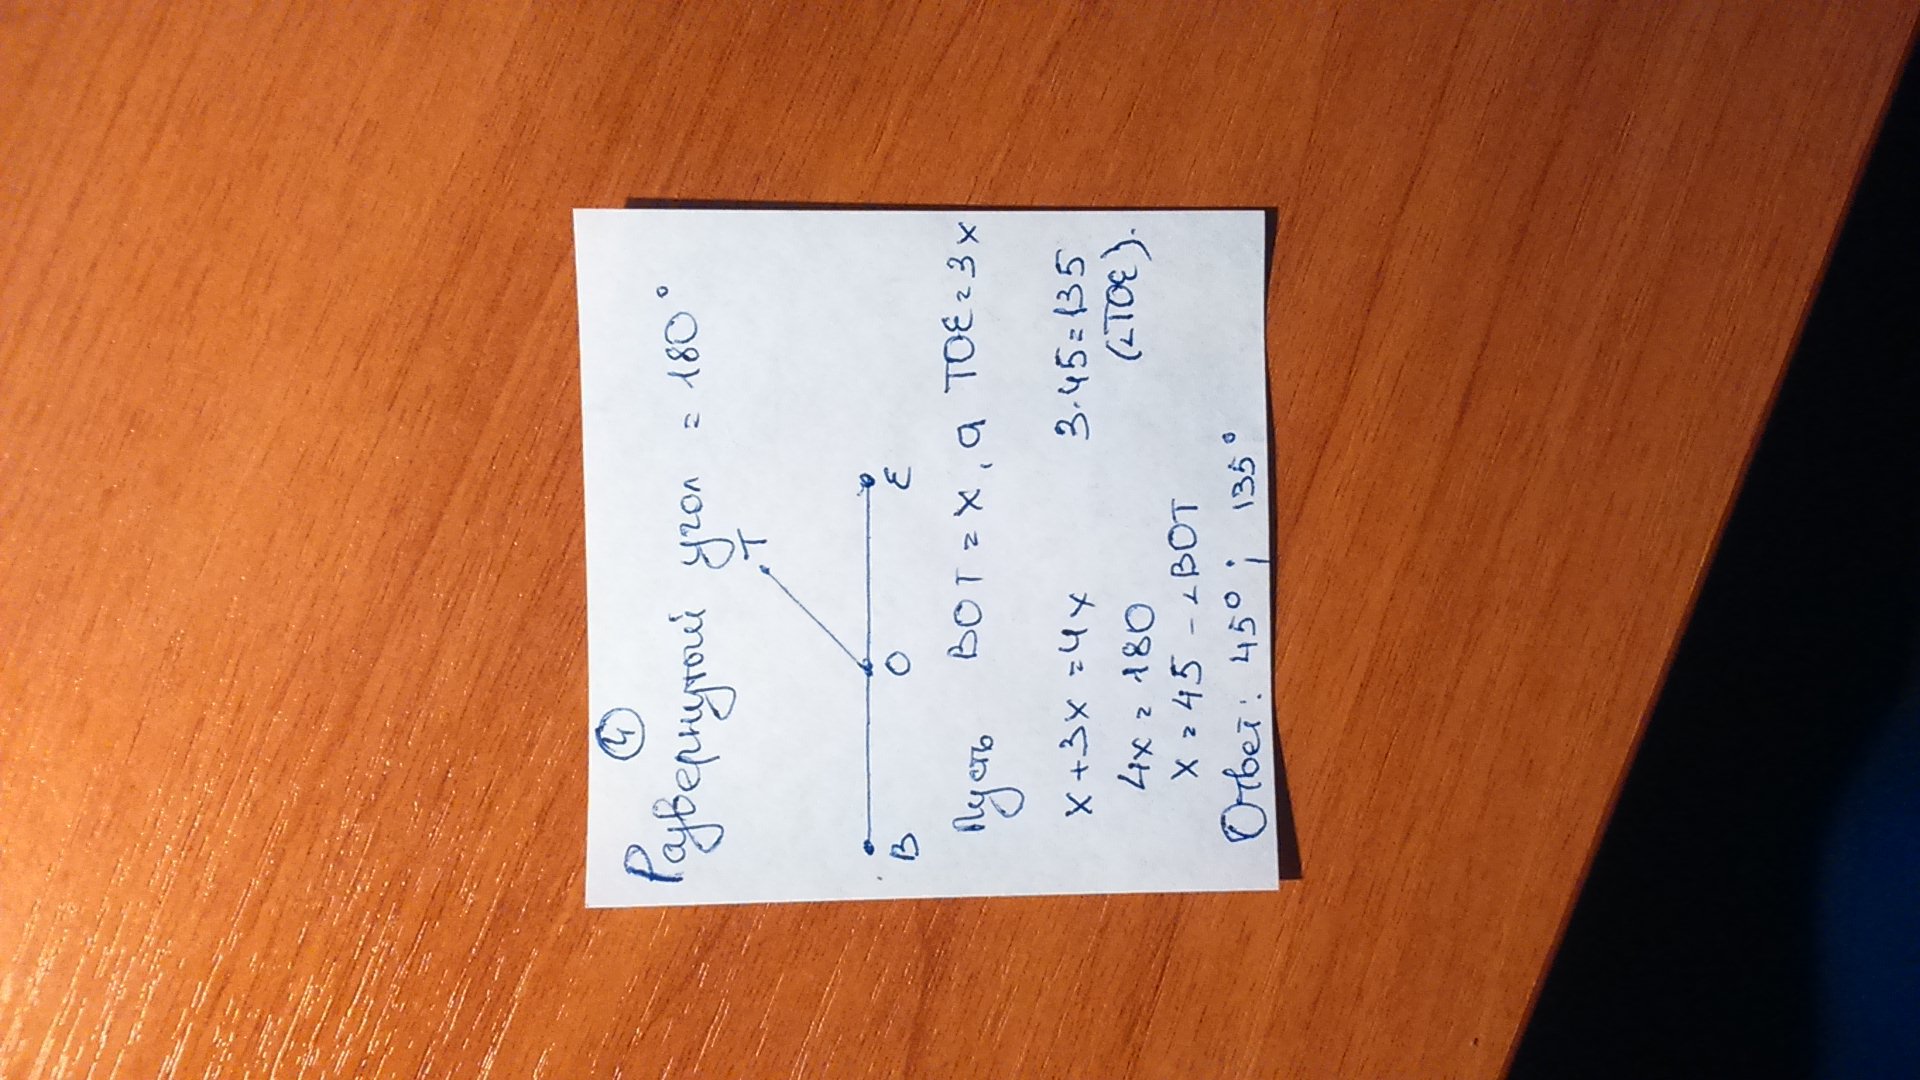 4
Развернутый угол = 180°
T
B O E
Пусть BOT = x, а TOE = 3x
x + 3x = 4x 3·45=135
4x = 180 (∠TOE).
x = 45 - ∠BOT
Ответ: 45°; 135°